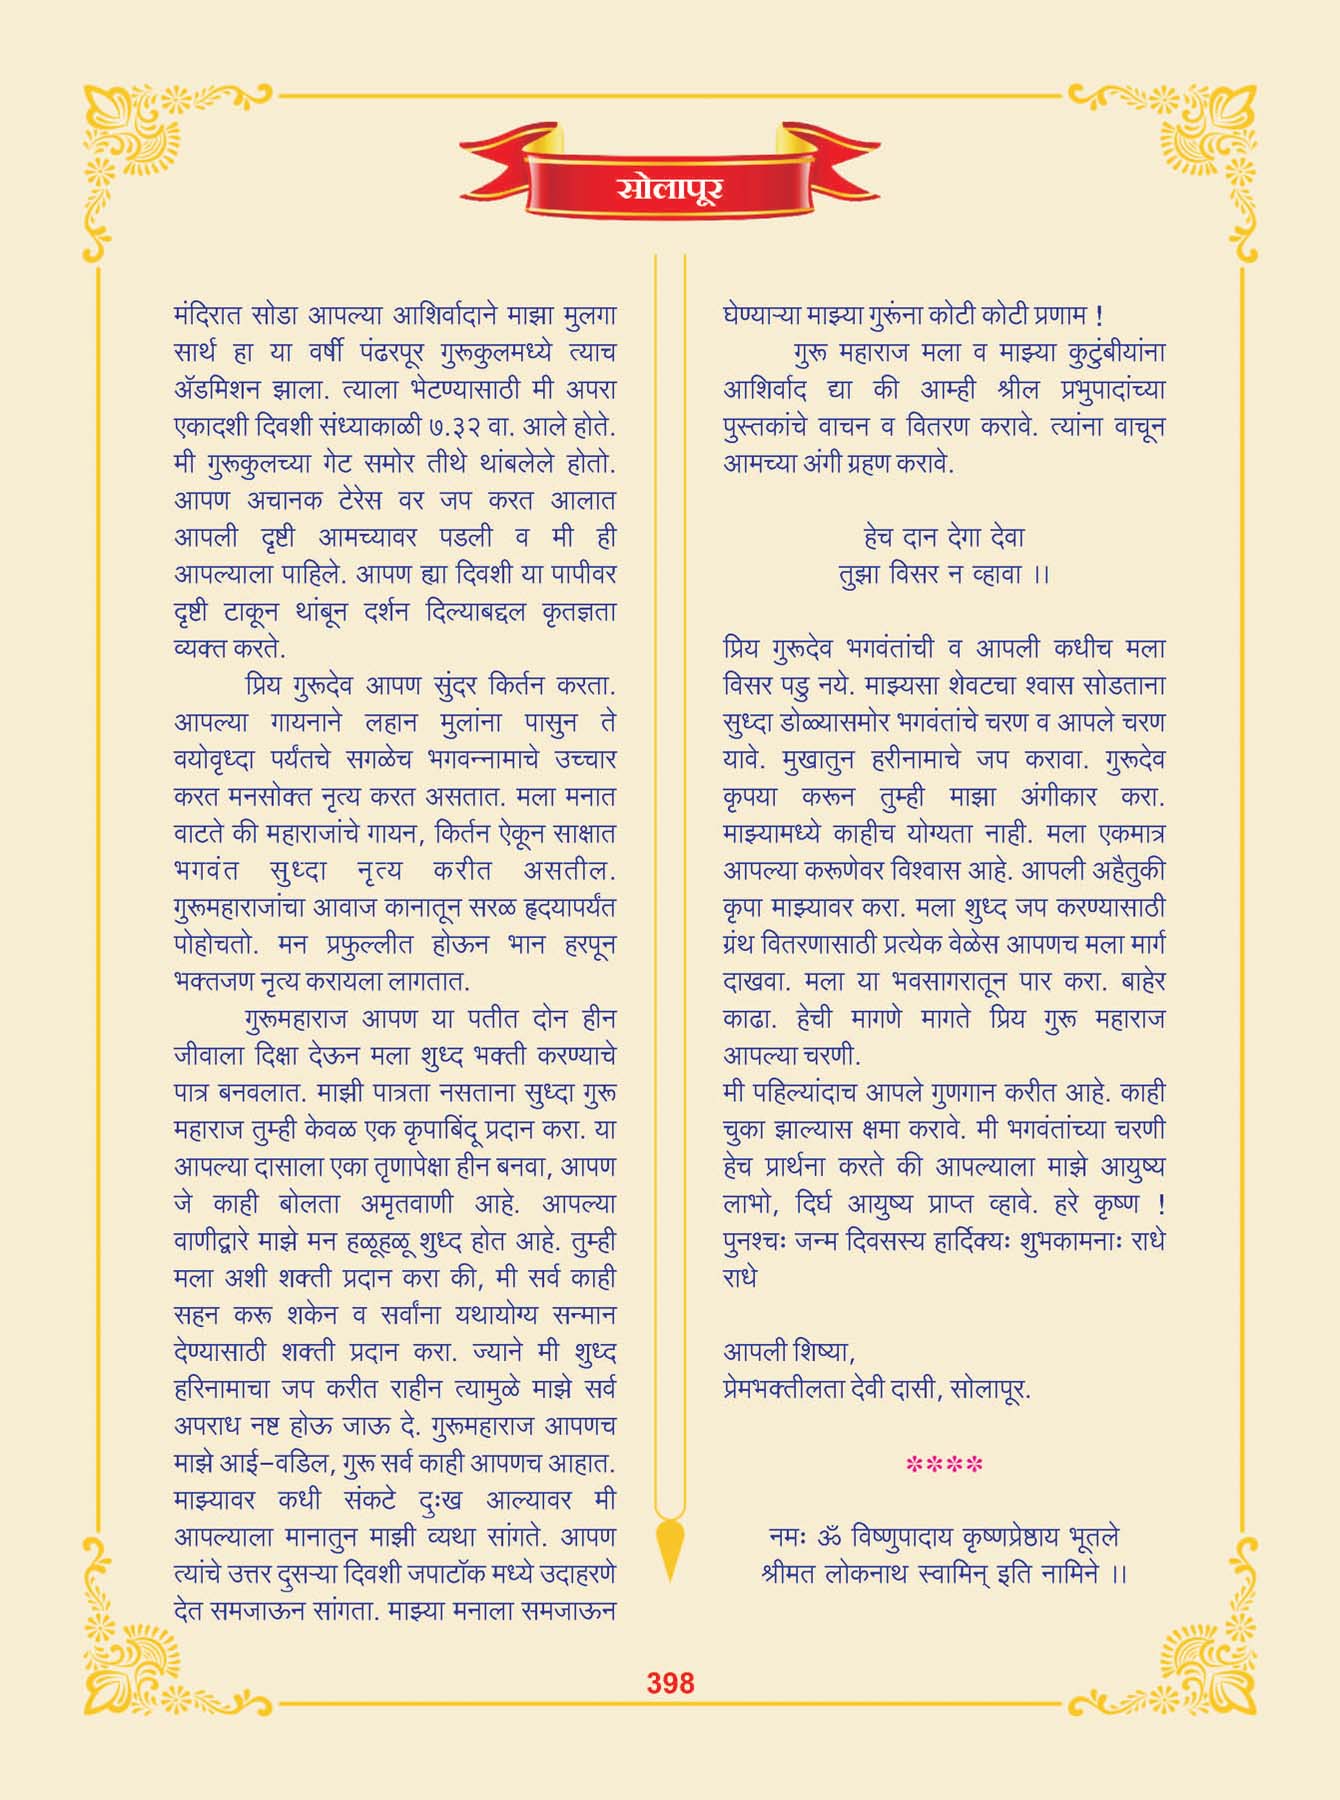 सोलापूर
मंदिरात सोडा आपल्या आशिर्वादाने माझा मुलगा
सार्थ हा या वर्षी पंढरपूर गुरूकुलमध्ये त्याच
ॲडमिशन झाला. त्याला भेटण्यासाठी मी अपरा
एकादशी दिवशी संध्याकाळी ७.३२ वा. आले होते.
मी गुरूकुलच्या गेट समोर तीथे थांबलेले होतो.
आपण अचानक टेरेस वर जप करत आलात
आपली दृष्टी आमच्यावर पडली व मी ही
आपल्याला पाहिले. आपण ह्या दिवशी या पापीवर
दृष्टी टाकून थांबून दर्शन दिल्याबद्दल कृतज्ञता
व्यक्त करते.
प्रिय गुरूदेव आपण सुंदर किर्तन करता.
आपल्या गायनाने लहान मुलांना पासुन ते
वयोवृध्दा पर्यंतचे सगळेच भगवन्नामाचे उच्चार
करत मनसोक्त नृत्य करत असतात. मला मनात
वाटते की महाराजांचे गायन, किर्तन ऐकून साक्षात
भगवंत सुध्दा नृत्य करीत असतील.
गुरूमहाराजांचा आवाज कानातून सरळ हृदयापर्यंत
पोहोचतो. मन प्रफुल्लीत होऊन भान हरपून
भक्तजण नृत्य करायला लागतात.
गुरूमहाराज आपण या पतीत दोन हीन
जीवाला दिक्षा देऊन मला शुध्द भक्ती करण्याचे
पात्र बनवलात. माझी पात्रता नसताना सुध्दा गुरू
महाराज तुम्ही केवळ एक कृपाबिंदू प्रदान करा. या
आपल्या दासाला एका तृणापेक्षा हीन बनवा, आपण
जे काही बोलता अमृतवाणी आहे. आपल्या
वाणीद्वारे माझे मन हळूहळू शुध्द होत आहे. तुम्ही
मला अशी शक्ती प्रदान करा की, मी सर्व काही
सहन करू शकेन व सर्वांना यथायोग्य सन्मान
देण्यासाठी शक्ती प्रदान करा. ज्याने मी शुध्द
हरिनामाचा जप करीत राहीन त्यामुळे माझे सर्व
अपराध नष्ट होऊ जाऊ दे. गुरूमहाराज आपणच
माझे आई-वडिल, गुरू सर्व काही आपणच आहात.
माझ्यावर कधी संकटे दुःख आल्यावर मी
आपल्याला मानातुन माझी व्यथा सांगते. आपण
त्यांचे उत्तर दुसऱ्या दिवशी जपाटॉक मध्ये उदाहरणे
देत समजाऊन सांगता. माझ्या मनाला समजाऊन
घेण्याऱ्या माझ्या गुरूंना कोटी कोटी प्रणाम !
गुरू महाराज मला व माझ्या कुटुंबीयांना
आशिर्वाद द्या की आम्ही श्रील प्रभुपादांच्या
पुस्तकांचे वाचन व वितरण करावे. त्यांना वाचून
आमच्या अंगी ग्रहण करावे.
हेच दान देगा देवा
तुझा विसर न व्हावा ।।
प्रिय गुरूदेव भगवंतांची व आपली कधीच मला
विसर पडु नये. माझ्यसा शेवटचा श्वास सोडताना
सुध्दा डोळ्यासमोर भगवंतांचे चरण व आपले चरण
यावे. मुखातुन हरीनामाचे जप करावा. गुरूदेव
कृपया करून तुम्ही माझा अंगीकार करा.
माझ्यामध्ये काहीच योग्यता नाही. मला एकमात्र
आपल्या करूणेवर विश्वास आहे. आपली अहैतुकी
कृपा माझ्यावर करा. मला शुध्द जप करण्यासाठी
ग्रंथ वितरणासाठी प्रत्येक वेळेस आपणच मला मार्ग
दाखवा. मला या भवसागरातून पार करा. बाहेर
काढा. हेची मागणे मागते प्रिय गुरू महाराज
आपल्या चरणी.
मी पहिल्यांदाच आपले गुणगान करीत आहे. काही
चुका झाल्यास क्षमा करावे. मी भगवंतांच्या चरणी
हेच प्रार्थना करते की आपल्याला माझे आयुष्य
लाभो, दिर्घ आयुष्य प्राप्त व्हावे. हरे कृष्ण !
पुनश्चः जन्म दिवसस्य हार्दिक्यः शुभकामनाः राधे
राधे
आपली शिष्या,
प्रेमभक्तीलता देवी दासी, सोलापूर.
****
नमः ॐ विष्णुपादाय कृष्णप्रेष्ठाय भूतले
श्रीमत लोकनाथ स्वामिन् इति नामिने ।।
398